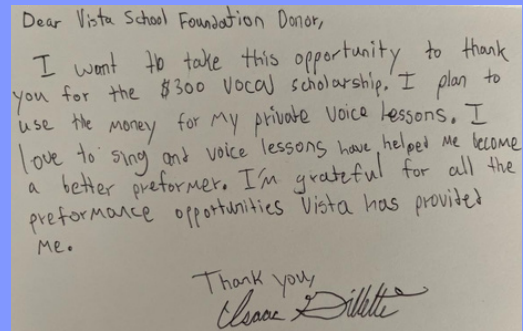 Dear Vista School Foundation Donor,
I want to take this opportunity to thank
you for the $300 vocal scholarship. I plan to
use the money for my private voice lessons. I
love to sing and voice lessons have helped me become
a better preformer. I'm grateful for all the
preformance opportunities Vista has provided
me.
Thank you,
Isaac Gillette